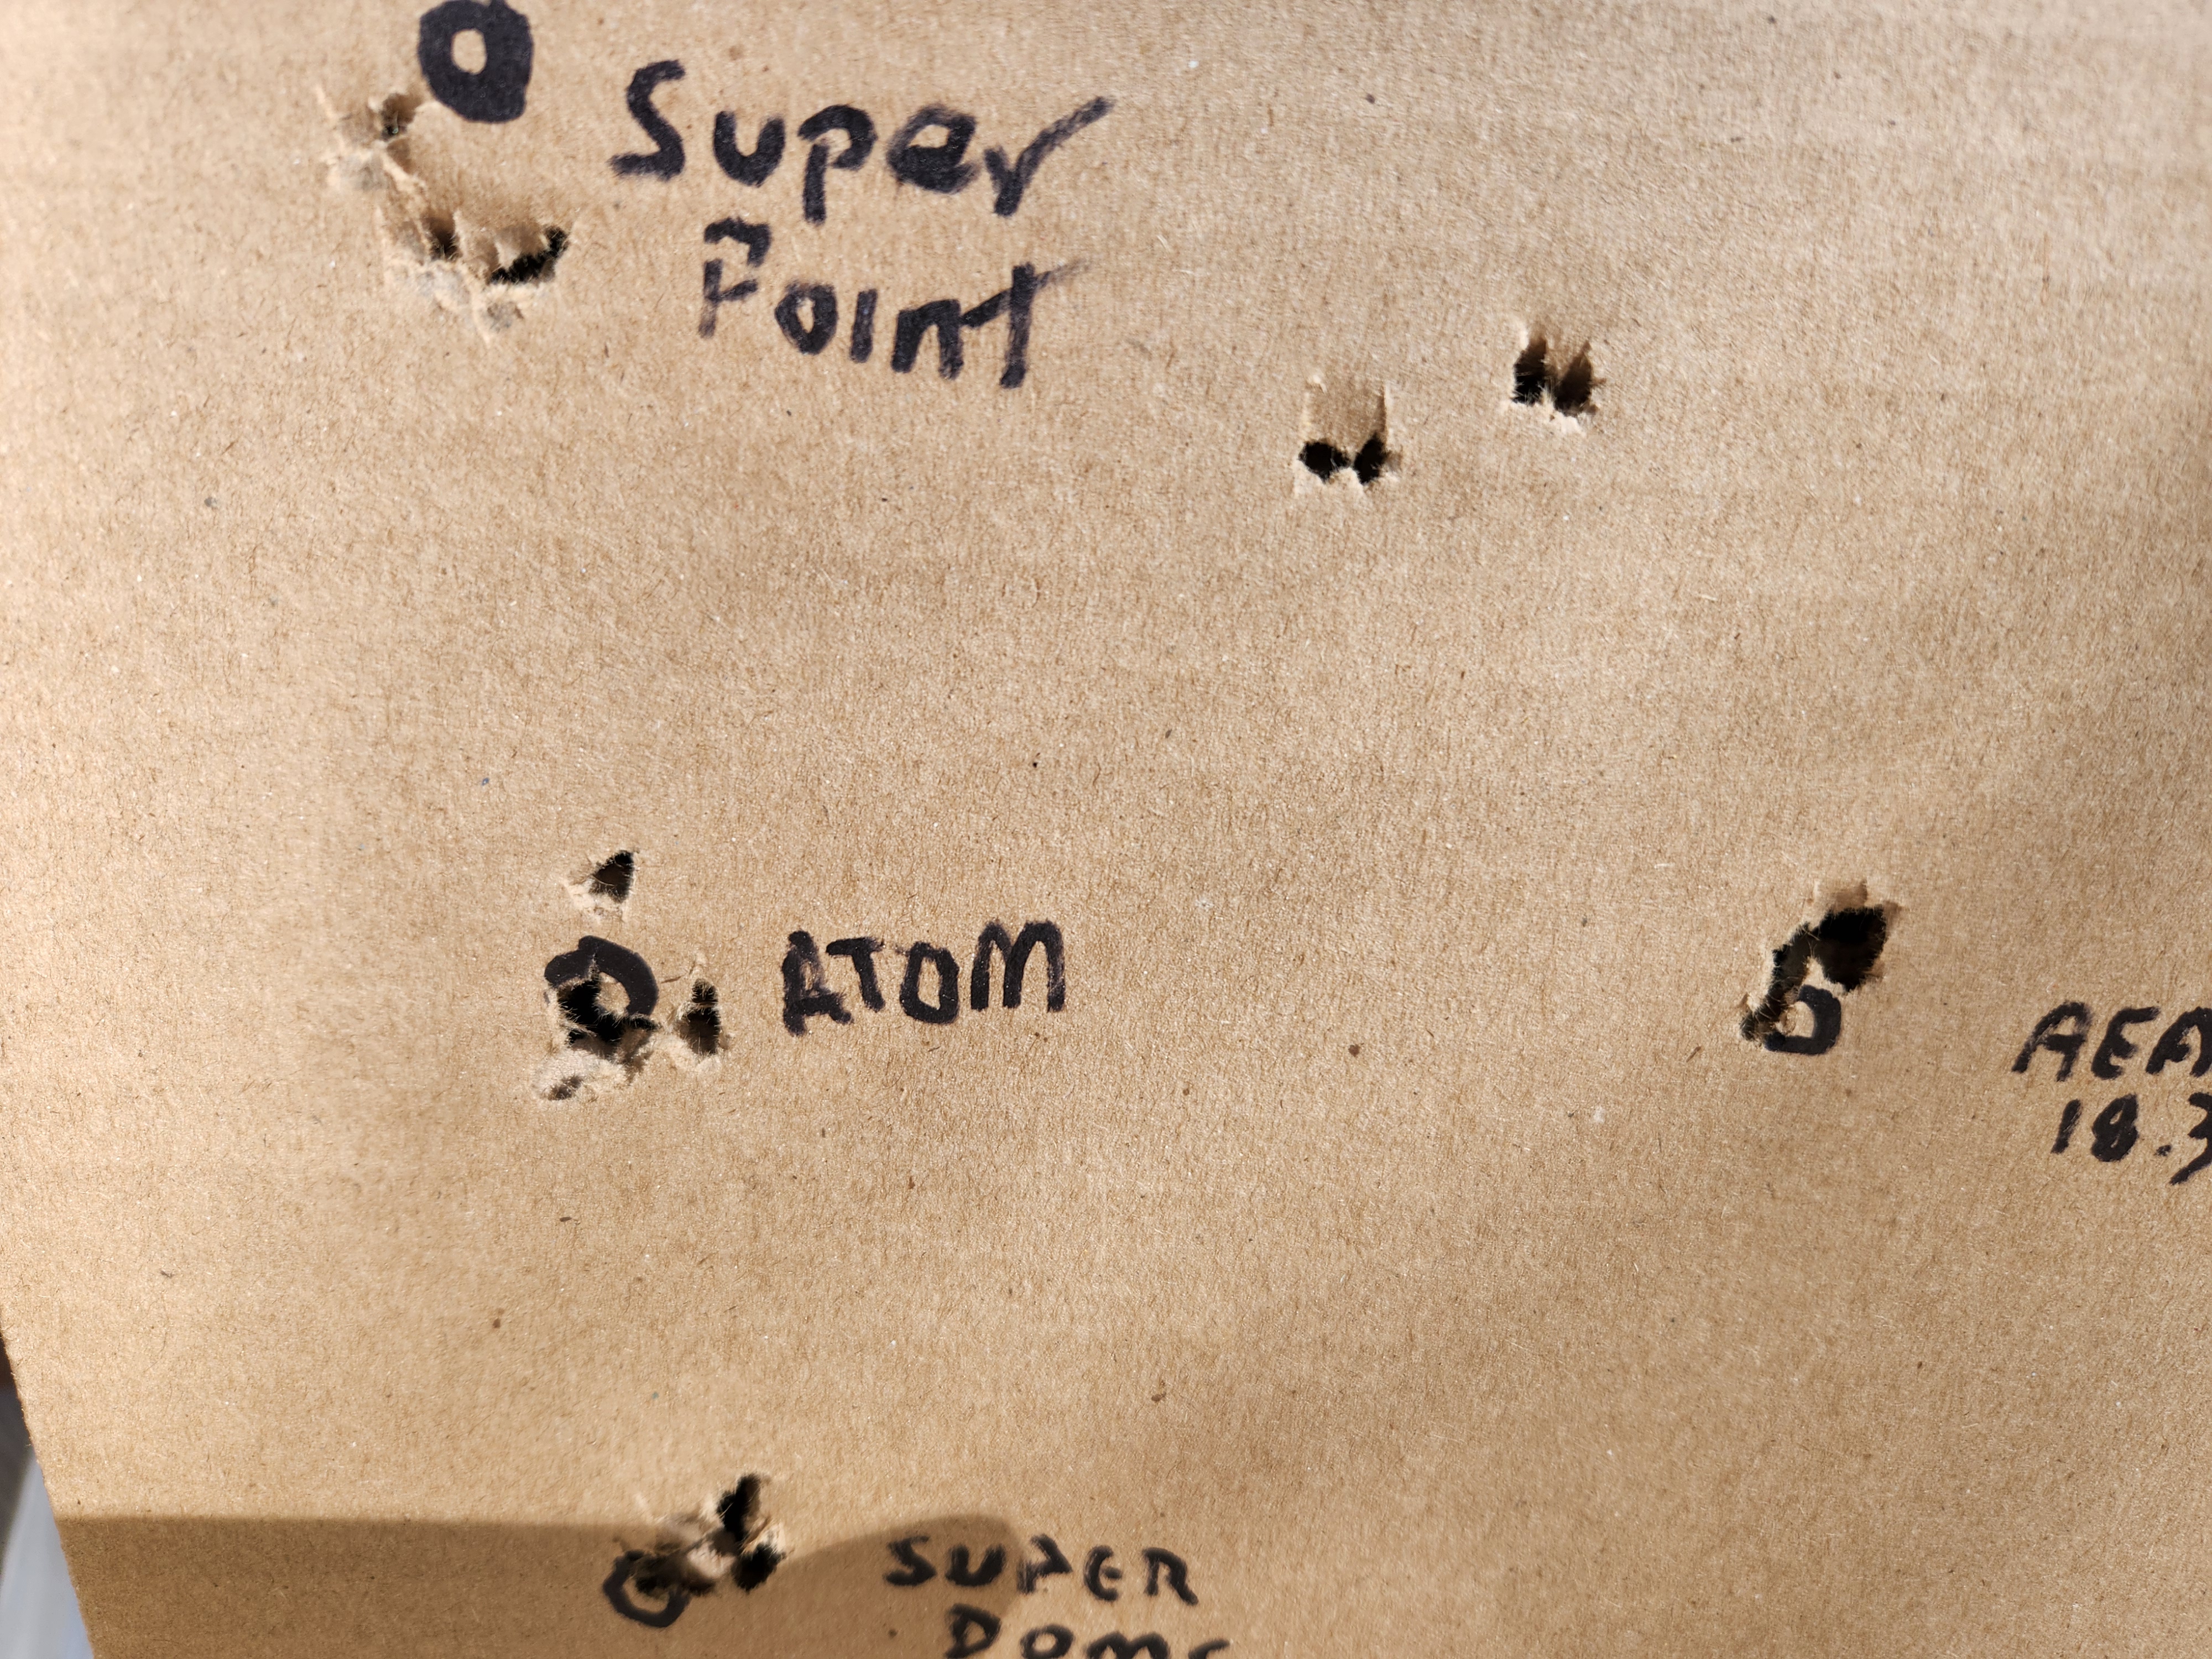 Super
Point
ATOM
AEA
18.3
SUPER
DOME